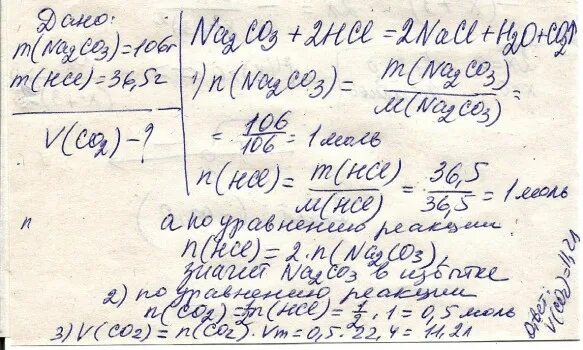 Дано:
m(Na₂CO₃)=106г
m(HCl)=36,5г
V(CO₂)-?
Na₂CO₃+2HCl=2NaCl+H₂O+CO₂↑
1) n(Na₂CO₃)= m(Na₂CO₃)/M(Na₂CO₃) =
= 106/106 = 1 моль
n(HCl)= m(HCl)/M(HCl) = 36,5/36,5 = 1 моль
n
а по уравнению реакции
n(HCl)=2·n(Na₂CO₃),
значит Na₂CO₃ в избытке
2) по уравнению реакции
n(CO₂)=1/2 n(HCl)=1/2·1=0,5 моль
3) V(CO₂)=n(CO₂)·Vm=0,5·22,4=11,2л
Ответ:
V(CO₂)=11,2л